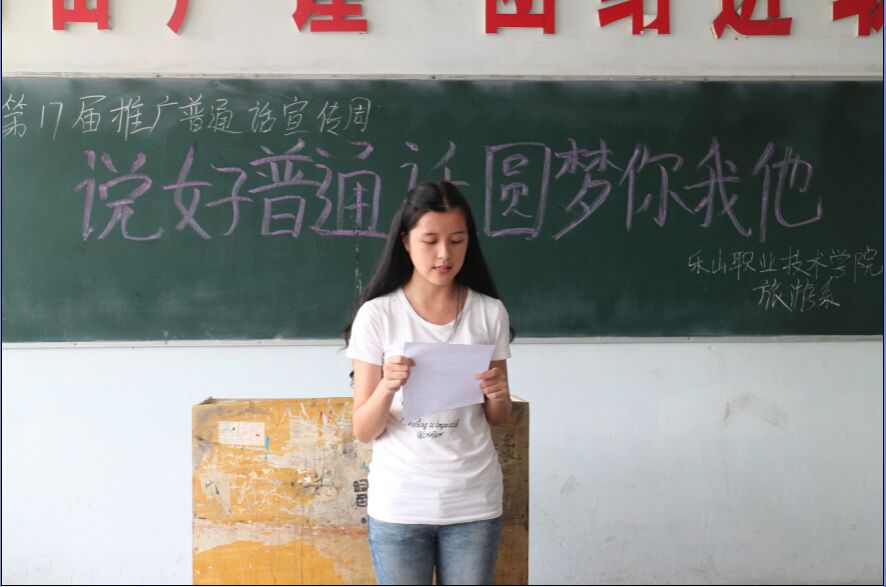 团结进取
第17届推广普通话宣传周
说好普通话圆梦你我他
乐山职业技术学院
旅游系
nothing is impossible